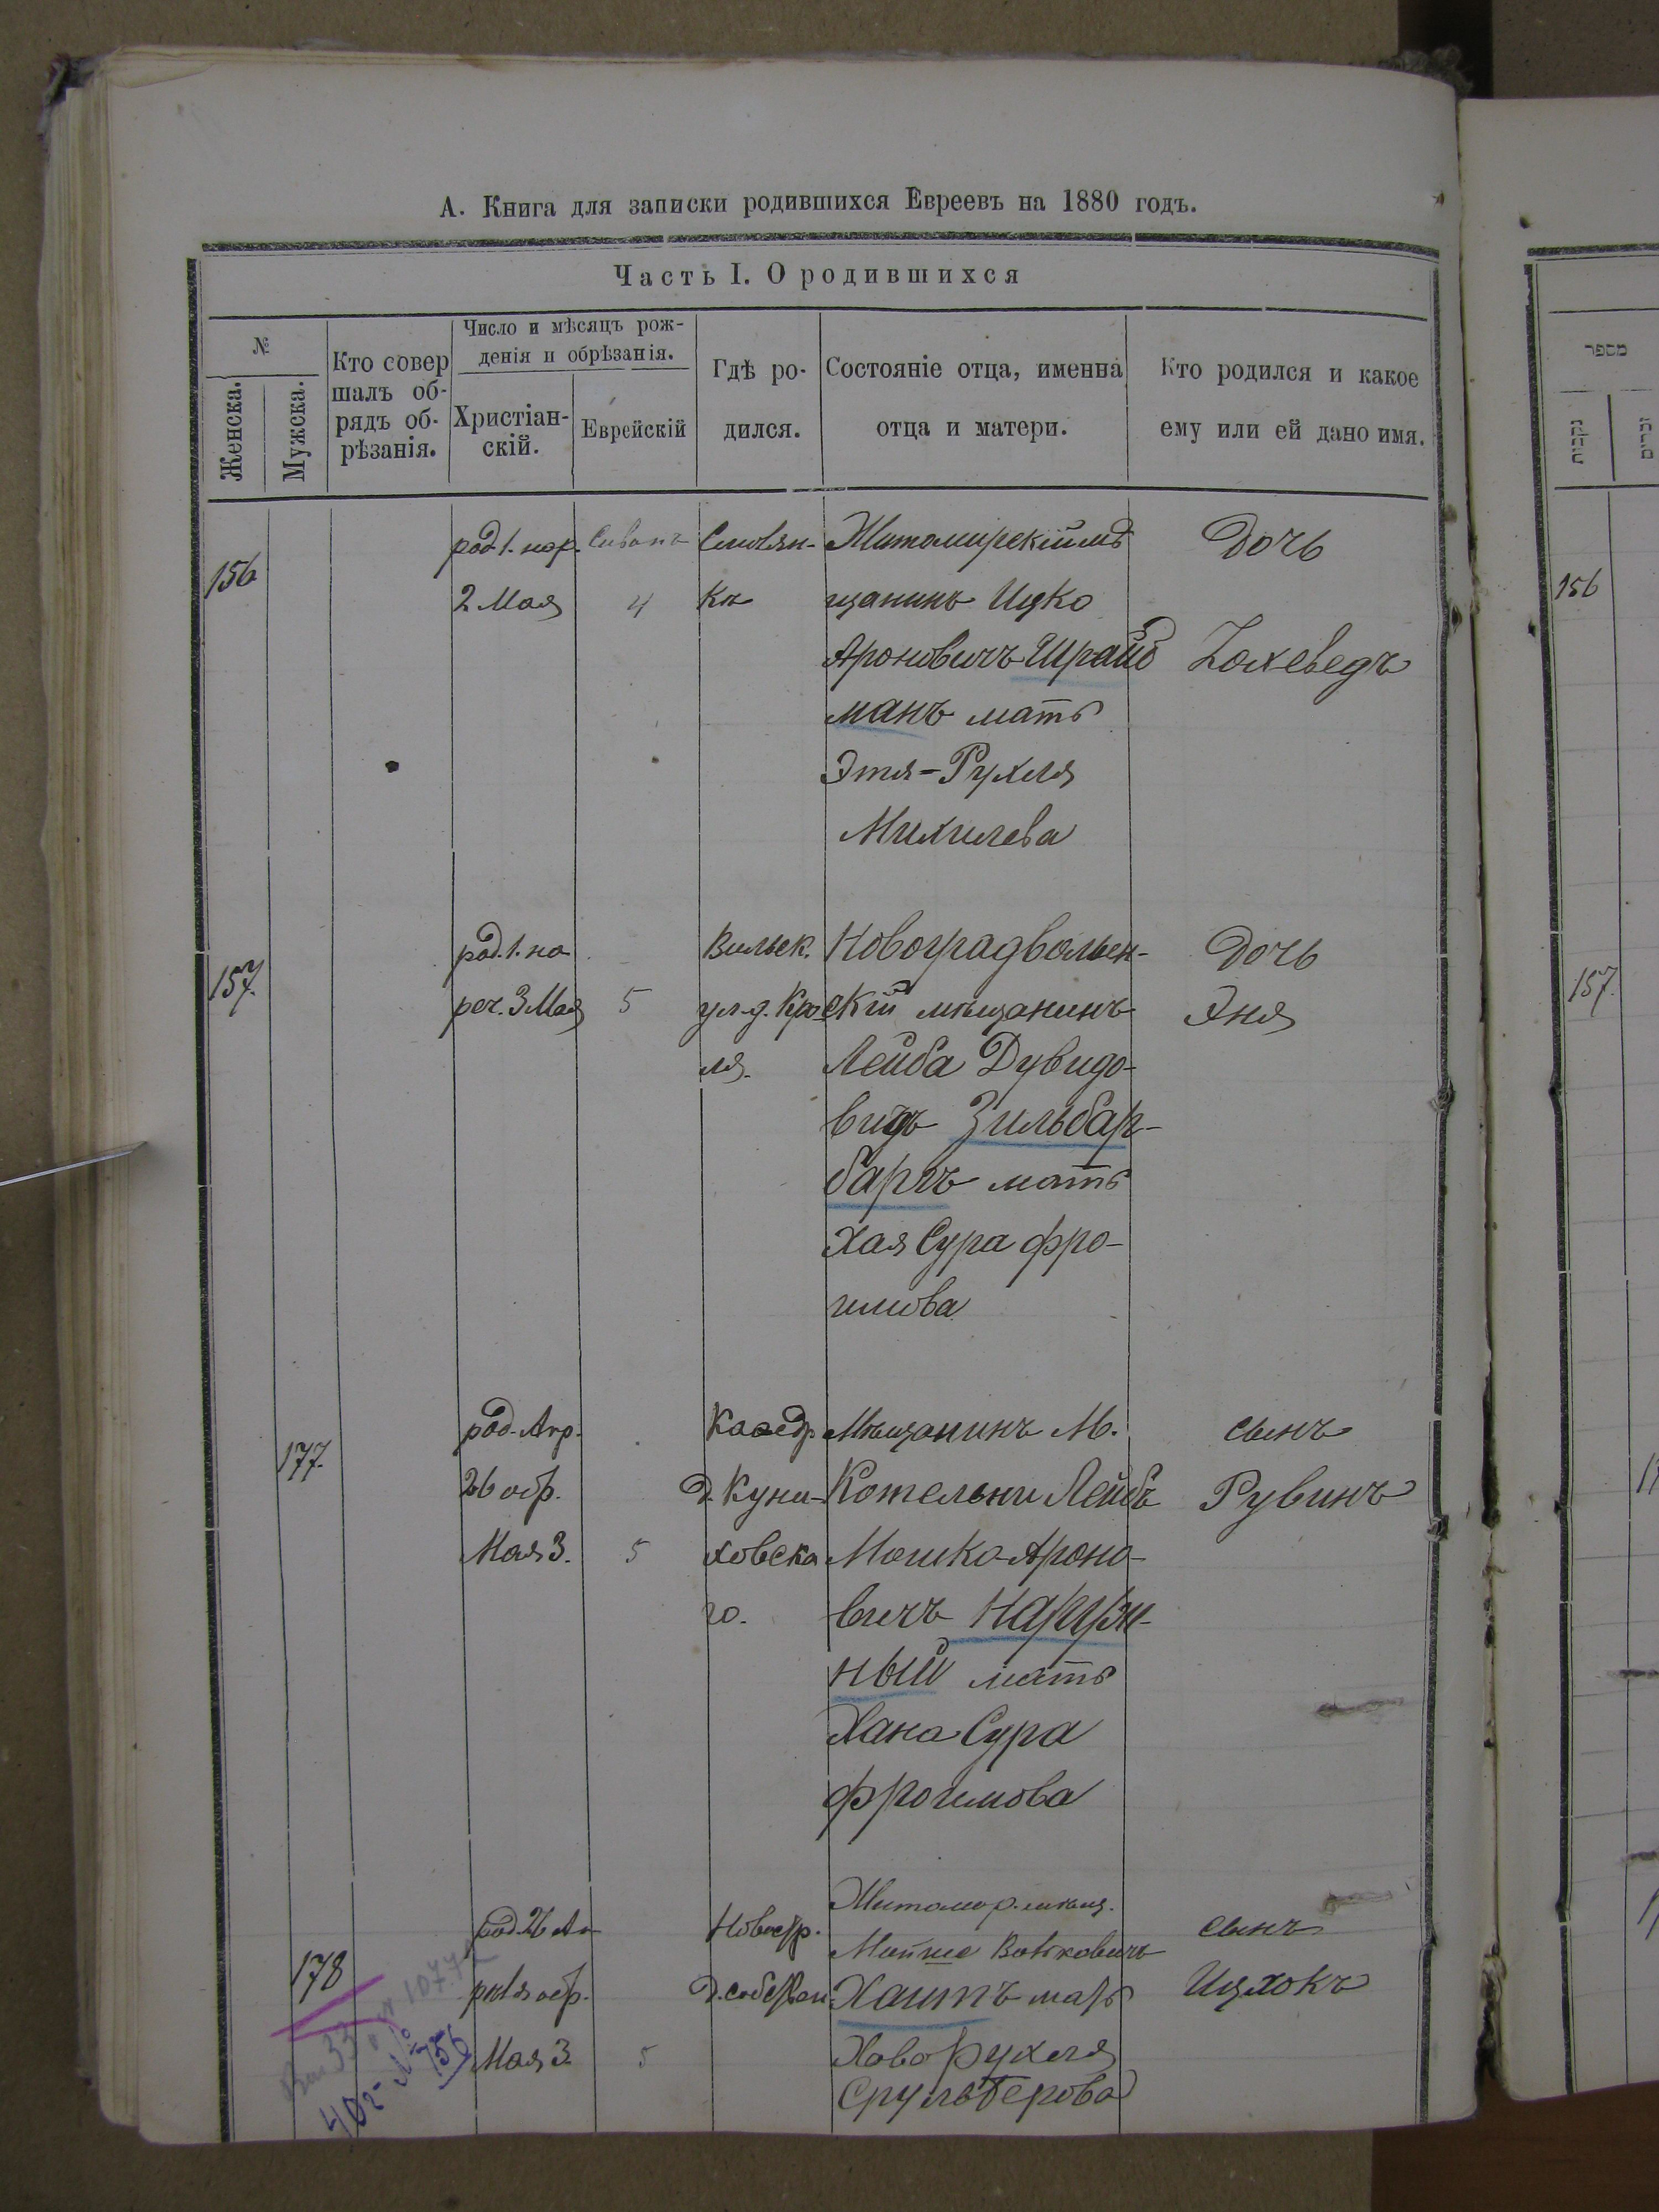 А. Книга для записки родившихся Евреевъ на 1880 годъ.
Часть I. О родившихся
№
Женска.
Мужска.
Кто совер
шалъ об-
рядъ об-
рѣзанія.
Число и мѣсяцъ рож-
денія и обрѣзанія.
Христіан-
скій.
Еврейскій
Гдѣ ро-
дился.
Состояніе отца, именна
отца и матери.
Кто родился и какое
ему или ей дано имя.
156
род. 1. нар.
2 Мая
Сиванъ
4
Житомирскій мѣ
щанинъ Ицко
Ароновичъ Шрайб
манъ мать
Этя-Рухля
Михилева
Дочь
157.
род. 1. на
реч. 3 Мая
5
Вильск.
ул. д. Кро
ля.
Новоградволын-
скій мѣщанинъ
Лейба Дувидо-
вичъ Зильбар-
баръ мать
Хая Сура Фро-
имова
Дочь
Эня
177.
род. Апр.
26 обр.
Мая 3.
5
Каѳедр.
д. Куни-
ховска
го.
Мѣщанинъ М.
Котельни Лейбъ
Мошко Ароно-
вичъ Наруж-
ный мать
Хана Сура
Фроимова
сынъ
Рувинъ
178
род. 26 Ап
обр.
Мая 3.
5
Новостр.
Житомир. мѣщ.
Мойше Вольковичъ
Хаитъ мать
Хаво Рухля
Срульберова
сынъ
Ицхокъ
756
מספר
נקבות
זכרים
156
157.